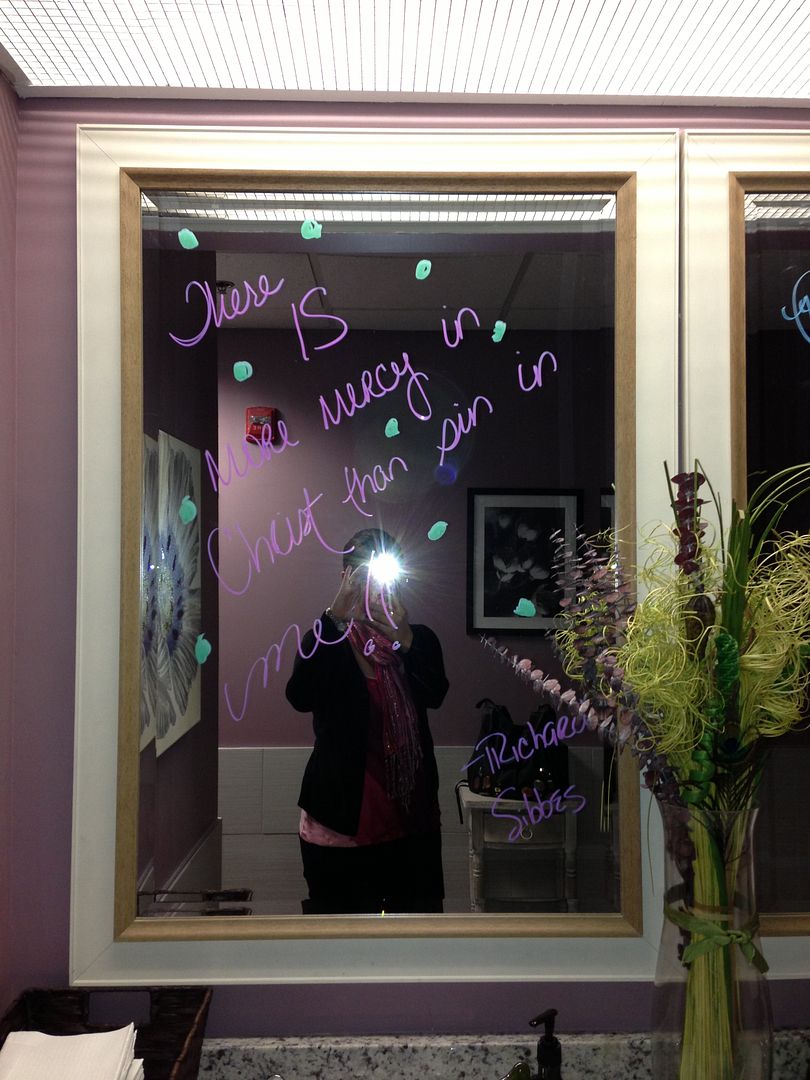 There
IS
More Mercy in
Christ than sin in
me!!
-Richard
Sibbes